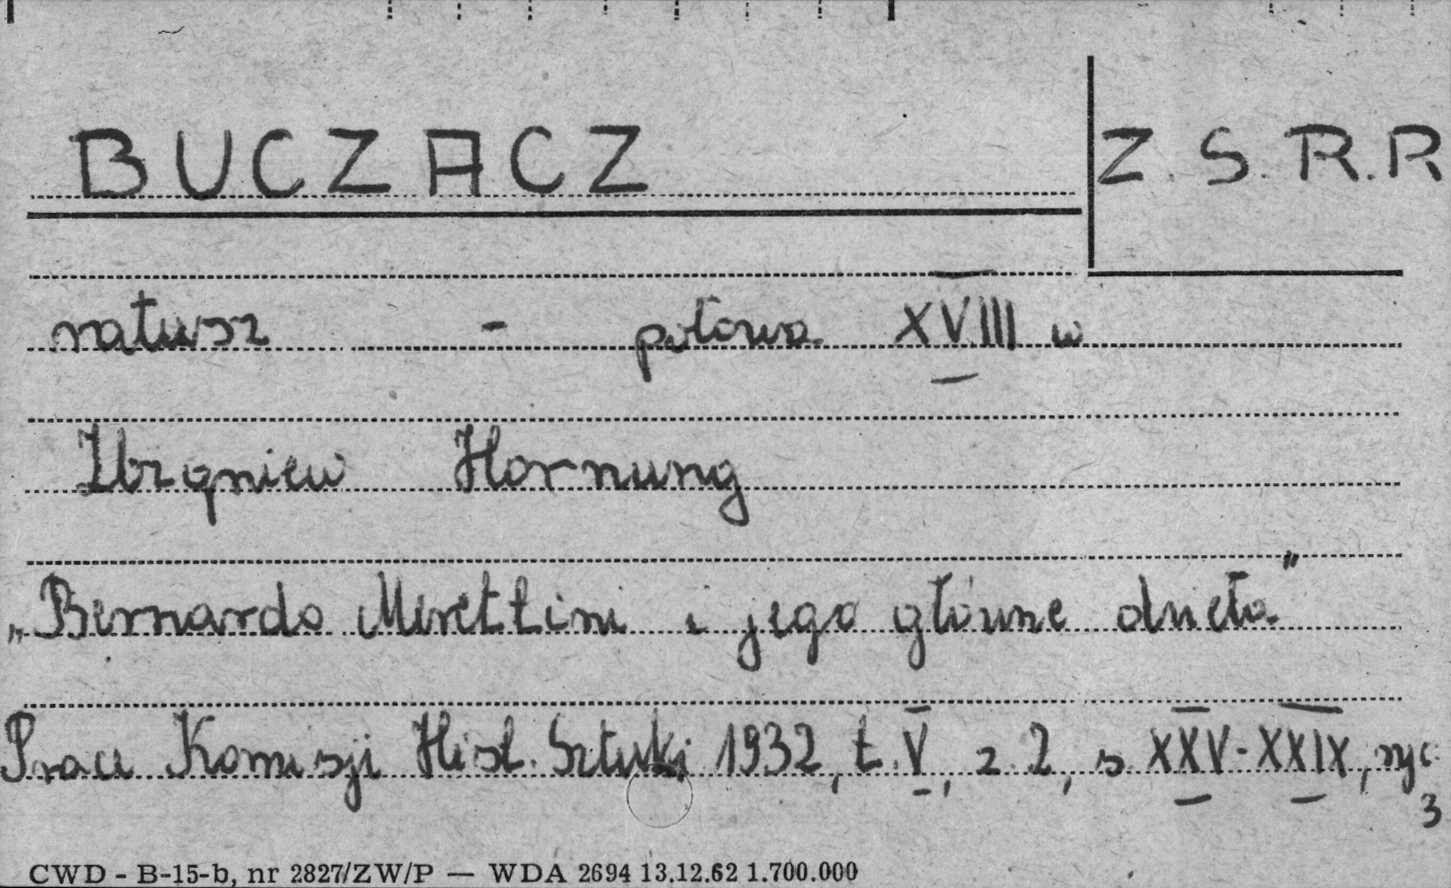 BUCZACZ Z.S.R.R
ratusz - połowa XVIII w
Zbigniew Hornung
„Bernardo Merettini i jego główne dzieła"
Prace Komisji Hist. Sztuki 1932, t. V, z. 2, s. XXV-XXIX, ryc. 3
CWD - B-15-b, nr 2827/ZW/P — WDA 2694 13.12.62 1.700.000